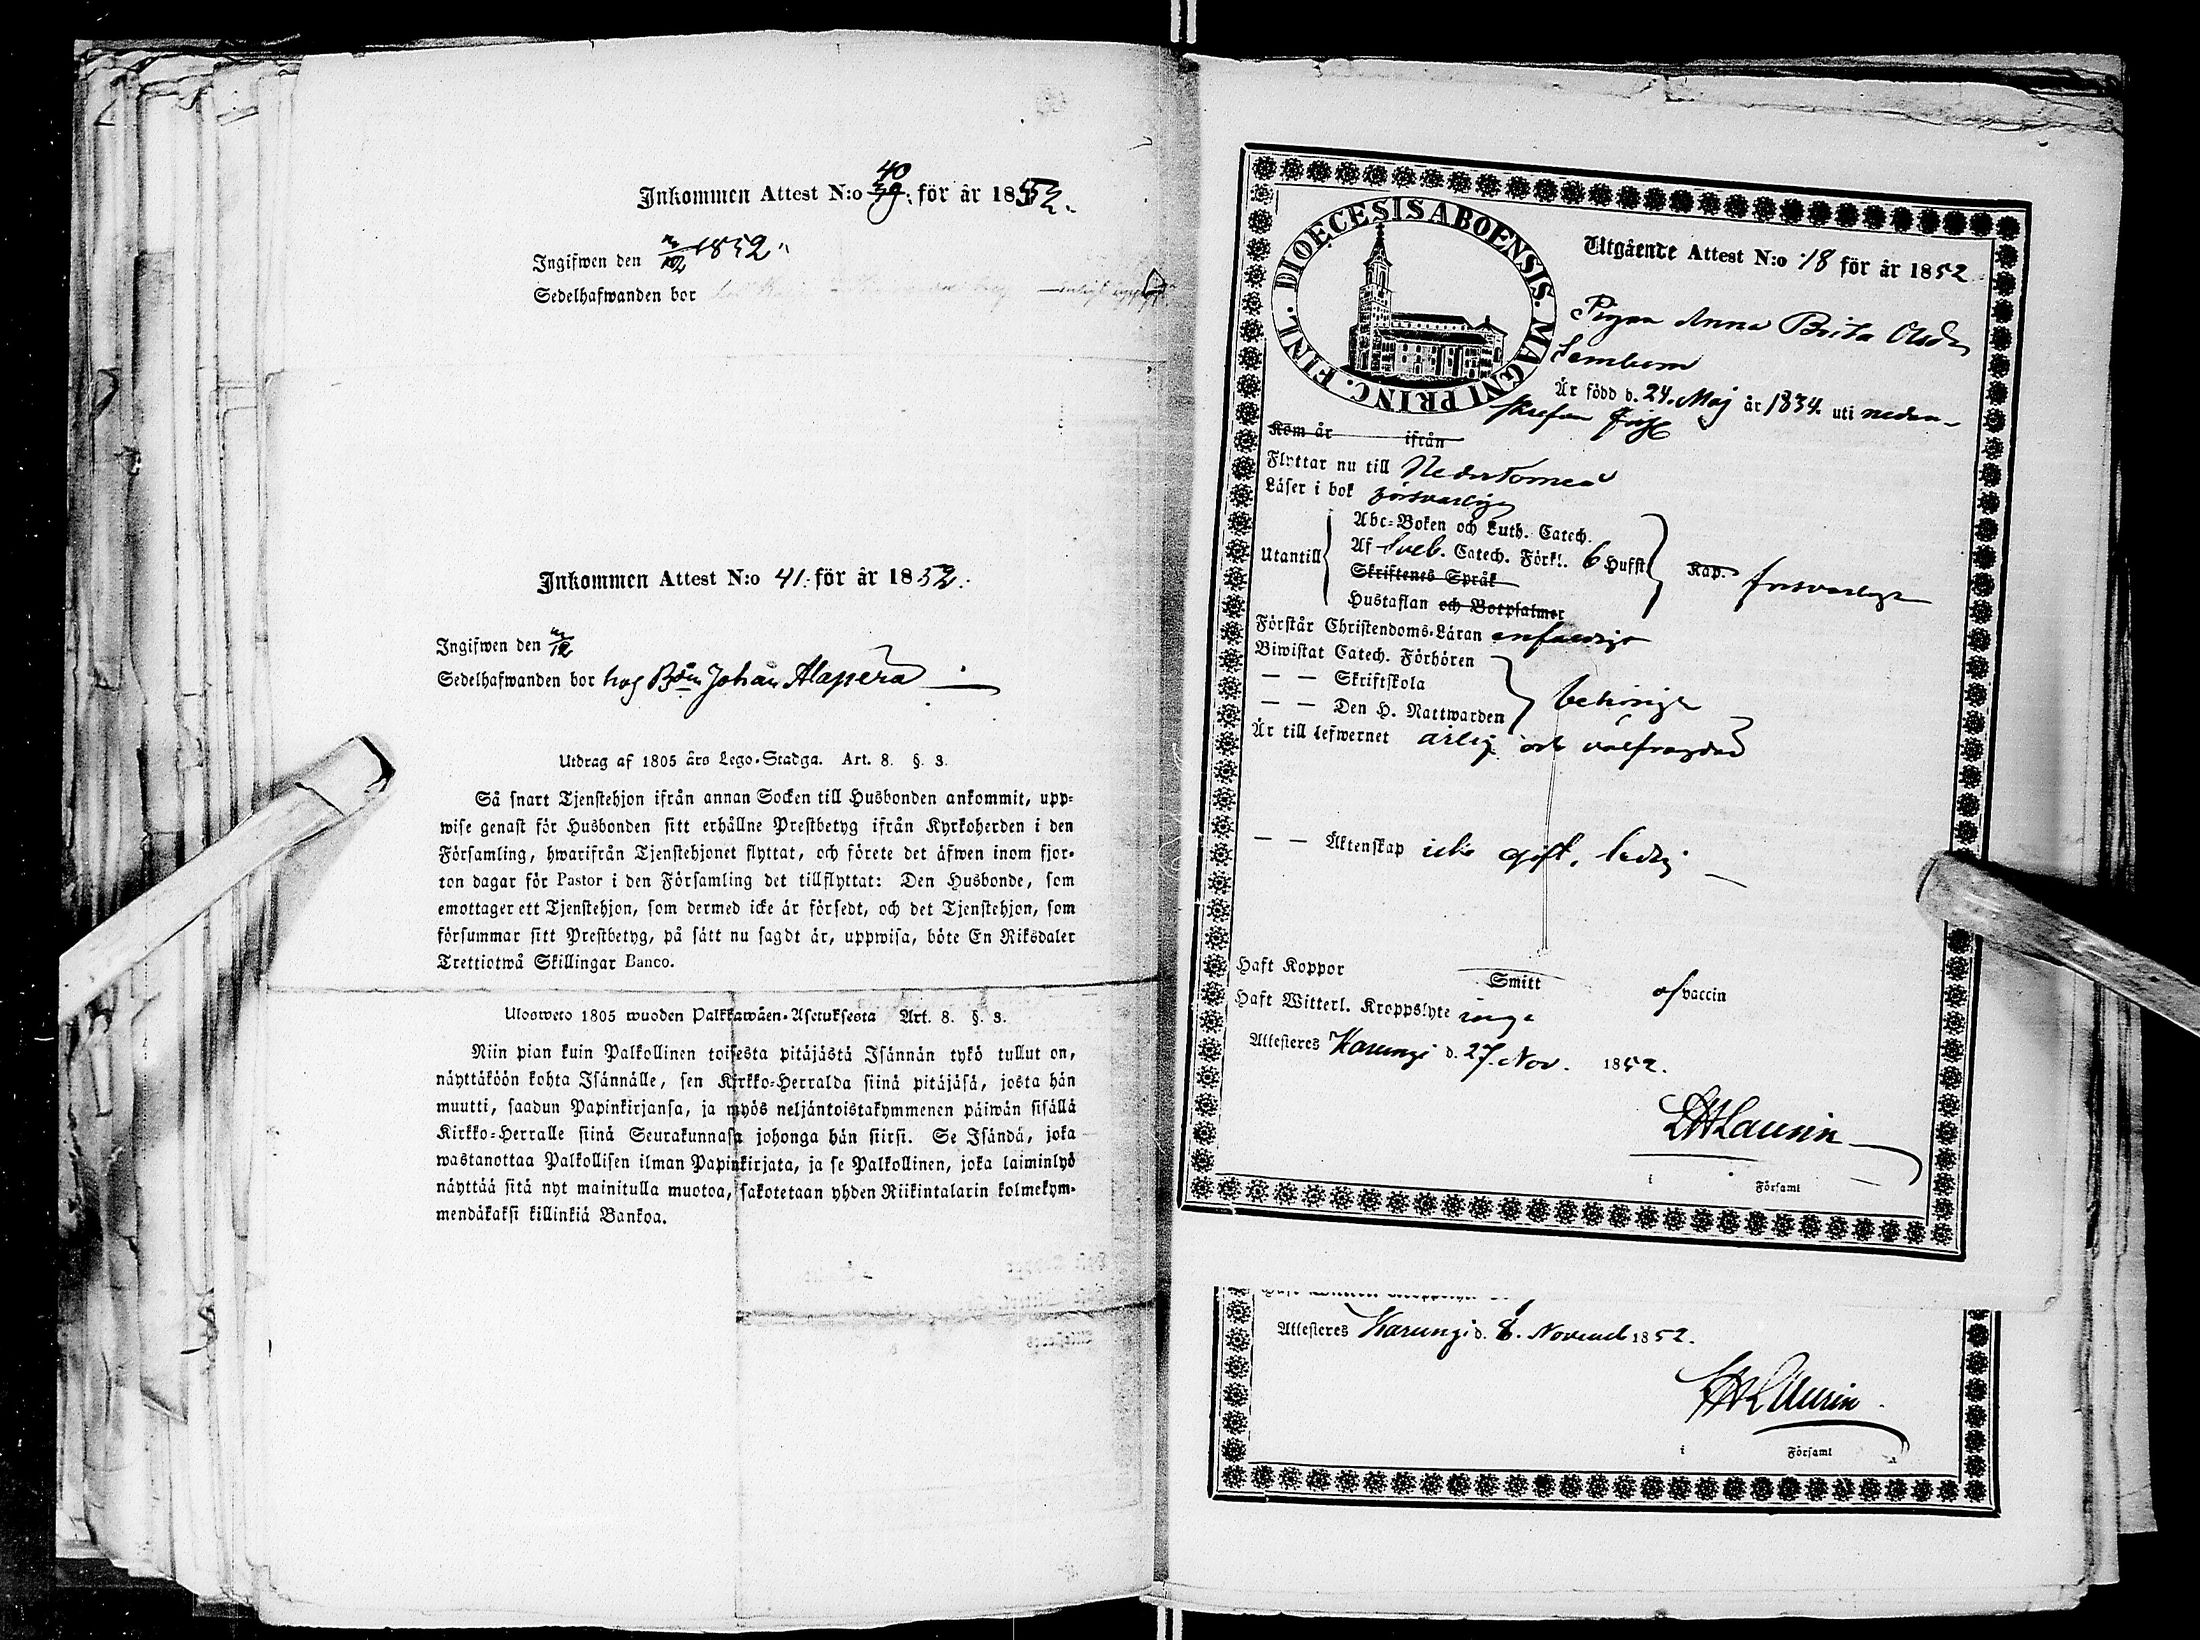 Inkommen Attest N:o 40 39. för år 1852.
Ingifwen den 3/12 1852.
Sedelhafwanden bor
Inkommen Attest N:o 41. för år 1852.
Ingifwen den
Sedelhafwanden bor hos Bdn Johan Alaperä
Utdrag af 1805 års Lego-Stadga. Art. 8. §. 3.
Så snart Tjenstehjon ifrån annan Socken till Husbonden ankommit, upp-
wise genast för Husbonden sitt erhållne Prestbetyg ifrån Kyrkoherden i den
Församling, hwarifrån Tjenstehjonet flyttat, och förete det äfwen inom fjor-
ton dagar för Pastor i den Församling det tillflyttat: Den Husbonde, som
emottager ett Tjenstehjon, som dermed icke är försedt, och det Tjenstehjon, som
försummar sitt Prestbetyg, på sätt nu sagdt är, uppwisa, böte En Riksdaler
Trettiotwå Skillingar Banco.
Ulosweto 1805 wuoden Palkkawäen-Asetuksesta Art. 8. §. 3.
Niin pian kuin Palkollinen toisesta pitäjästä Isännän tykö tullut on,
näyttäköön kohta Isännälle, sen Kirkko-Herralda siinä pitäjäsä, josta hän
muutti, saadun Papinkirjansa, ja myös neljäntoistakymmenen päiwän sisällä
Kirkko-Herralle siinä Seurakunnasa johonga hän siirsi. Se Isändä, joka
wastanottaa Palkollisen ilman Papinkirjata, ja se Palkollinen, joka laiminlyö
näyttää sitä nyt mainitulla muotoa, sakotetaan yhden Riikintalarin kolmekym-
mendäkaksi killinkiä Bankoa.
DIOECESIS ABOENSIS. MAGNI PRINC. FINL.
Utgående Attest N:o 18 för år 1852
Pigan Anna Brita Olsdr
Är född d. 24. Maj år 1834. uti nedan-
Kom år ifrån
Flyttar nu till Neder Torneå
Läser i bok försvarligt
Utantill
Abc-Boken och Luth. Catech.
Af Sveb. Catech. Förkl. 6 Hufst
Skriftenes Språk
Hustaflan och Botpsalmer
Kap. försvarligt
Förstår Christendoms-Läran enfaldigt
Biwistat Catech. Förhören
— — Skriftskola
— — Den H. Nattwarden
behörigt
Är till lefwernet ärlig och välfrägdad
— — Äktenskap icke gift, ledig
Haft Koppor Smitt af vaccin
Haft Witterl. Kroppslyte inga
Attesteres Karungi d. 27. Nov. 1852.
LHLaurin
i Församl
Attesteres Karungi d. 8. Novemb 1852.
LHLaurin
i Församl